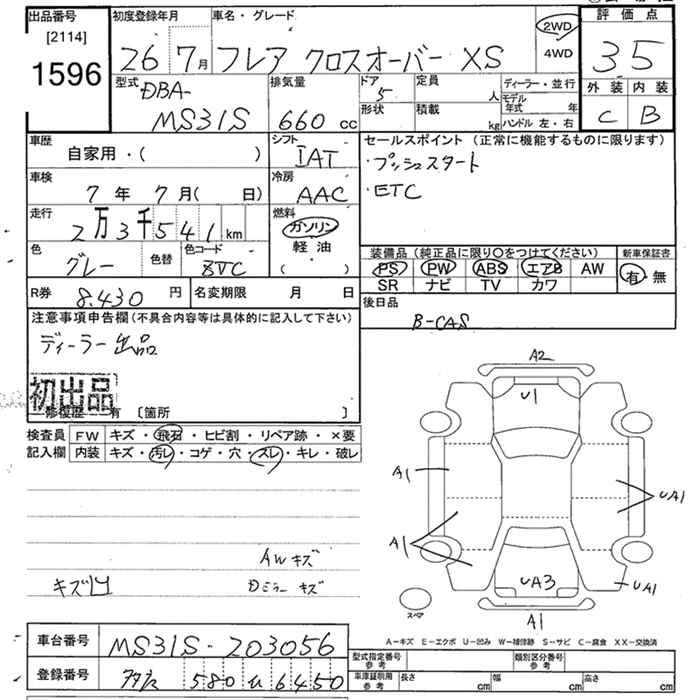 出品番号 初度登録年月 車名・グレード 2WD 評価点
[2114]
1596 26 7月 フレア クロスオーバー XS 4WD 35
型式 排気量 ドア 定員 ディーラー・並行 外装 内装
DBA- 5 人 モデル年式 年
MS31S 660 cc 形状 積載 kg ハンドル 左・右 C B
車歴 シフト セールスポイント (正常に機能するものに限ります)
自家用・( ) IAT ・プッシュスタート
車検 冷房 ・ETC
7年 7月( 日) AAC
走行 燃料
2万3千541km ガソリン
軽油
色 色替 色コード 装備品 (純正品に限り〇をつけてください) 新車保証書
グレー ZVC ( ) PS PW ABS エアB AW 有・無
SR ナビ TV カワ
R券 8.430円 名変期限 月 日 後日品
注意事項申告欄(不具合内容等は具体的に記入して下さい) B-CAS
ディーラー出品
初出品
修復歴 有 [箇所 ]
A2
U1
検査員 FW キズ・飛石・ヒビ割・リペア跡・×要
記入欄 内装 キズ・汚レ・コゲ・穴・スレ・キレ・破レ
A1 UA1
A1
AWキズ
キズ凹 Dミラーキズ UA3 UA1
スペア A1
A-キズ E-エクボ U-凹み W-補修跡 S-サビ C-腐食 XX-交換済
車台番号 MS31S-203056
型式指定番号 参考 類別区分番号 参考
登録番号 580 6450
車庫証明用 参考 長さ cm 幅 cm 高さ cm